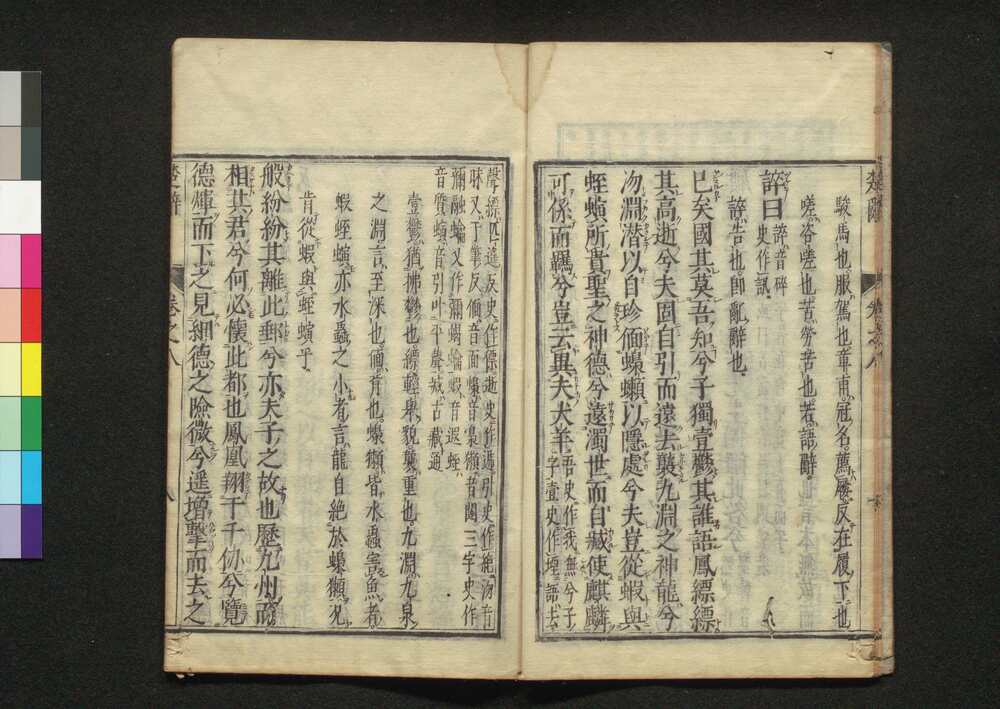 駿馬也服駕也章甫冠名薦屨反在履下也
嗟咨嗟也苦勞苦也若語辭
誶曰誶音碎史作訊
誶告也即亂辭也
已矣國其莫吾知兮子獨壹鬱其誰語鳳縹縹
其高逝兮夫固自引而遠去襲九淵之神龍兮
沕淵潛以自珍偭蟂獺以隱處兮夫豈從蝦與
蛭螾所貴聖之神德兮遠濁世而自臧使麒麟
可係而羈兮豈云異夫犬羊吾史作我無兮子字壹史作堙語去
聲縹匹遙反史作漂逝史作遰引史作縮沕音
昧又于筆反偭音面蟂音梟獺者闥三字史作
彌融爚又作彌蝎爚蝦音遐蛭
音質螾音引叶平聲臧古藏通
壹鬱猶怫鬱也縹輕舉貌襲重也九淵九泉
之淵言至深也偭背也蟂獺皆水蟲害魚者
蝦蛭螾亦水蟲之小者言龍自絶於蟂獺况
肯從蝦與蛭螾乎
般紛紛其離此郵兮亦夫子之故也歷九州而
相其君兮何必懷此都也鳳凰翔于千仞兮覽
德煇而下之見細德之險微兮遙增擊而去之
楚辭
卷之八
八